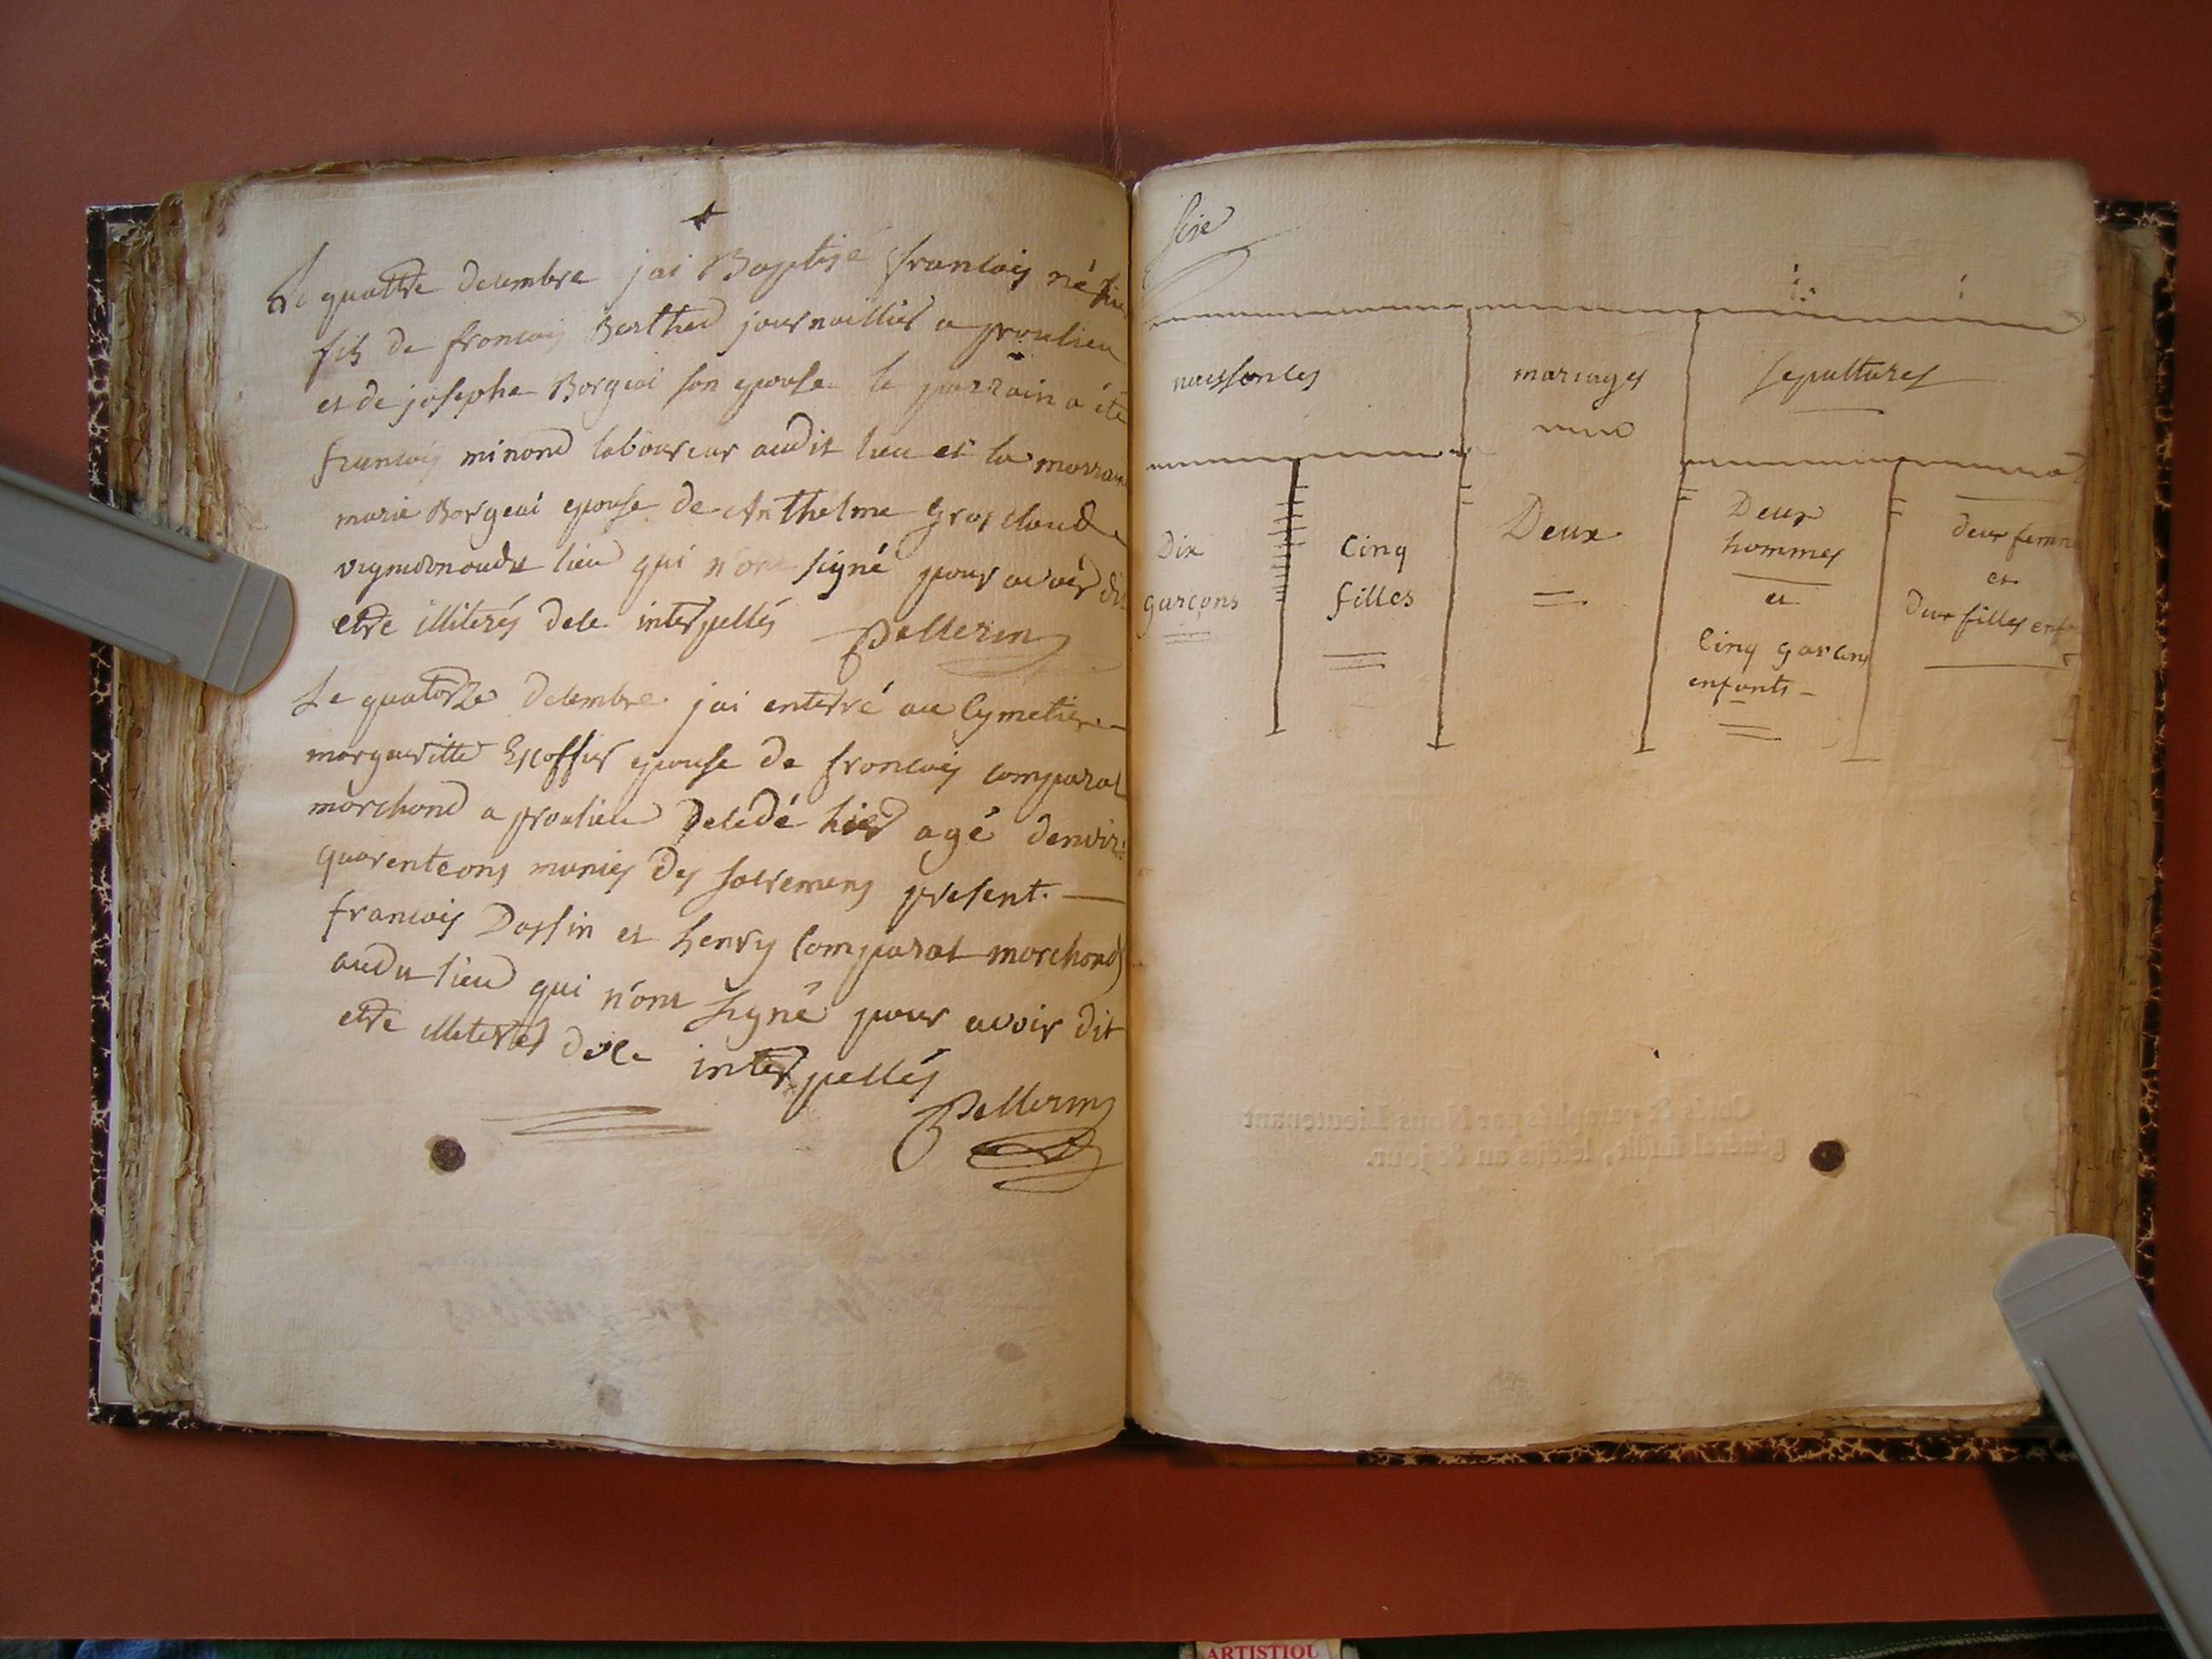 Le quattre decembre jai Baptisé francois né hier
fils de francois Berthed journaillier a proulieu
et de josephe Borgeai son epouse le parrain a été
francois minond laboureur audit lieu et la marraine
marie Borgeai epouse de Anthelme Gros claude
vigneron audit lieu qui n'ont signé pour avoir dit
etre illiterés dece interpellés Pellerin
Le quatorze decembre jai enterré au Cymetiere
margueritte Escoffier epouse de francois comparat
marchand a proulieu decedé hier agé denviron
quarente ans munies des sacremens present.
francois Dossin et henry Comparat marchands
audit lieu qui n'ont signé pour avoir dit
etre illiterés dece interpellés
Pellerin
naissances mariages sepultures
Dix garçons
Cinq filles
Deux
Deux hommes
et
Cinq garcons
enfants
deux femmes
et
Deux filles enf
Cotés & paraphés par Nous Lieutenant
général susdit, lesdits an & jour.
ARTISTIQU